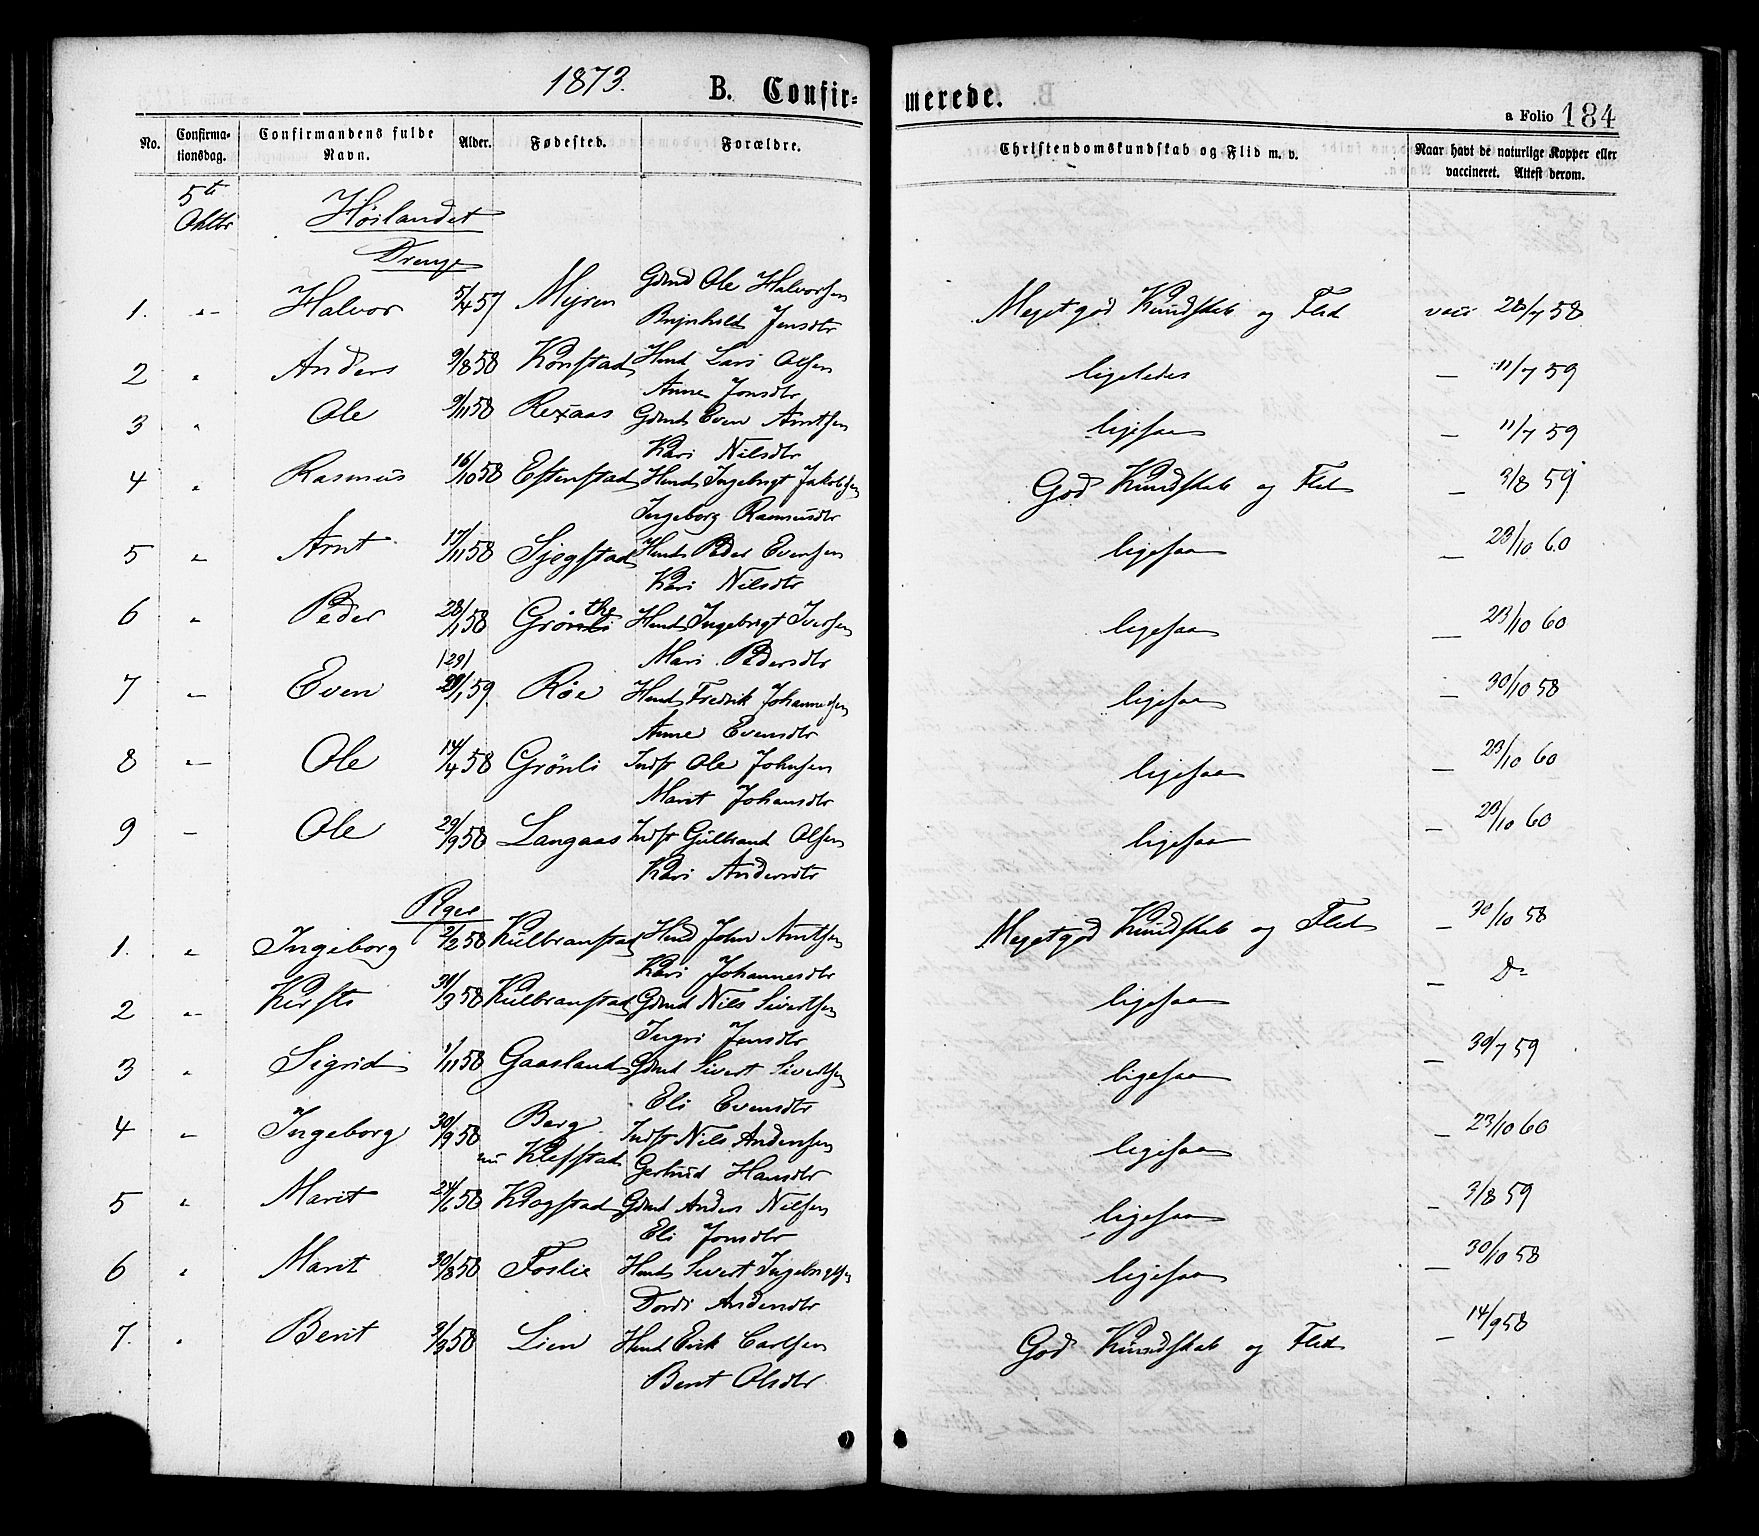 1873. B. Confir= merede.
a Folio 184
No. Confirma-tionsdag. Confirmandens fulde Navn. Alder. Fødested. Forældre. Christendomskundskab og Flid m. v. Naar havt de naturlige Kopper eller vaccineret. Attest derom.
5te Oktbr Höilandet
Drenge
1. " Halvor 5/4 57 Myren Gdmd Ole Halvorsen Meget god Kundskab og Flid vacc 28/7 58
Brynhild Jensdtr
2 " Anders 9/8 58 Konstad Hmd Lars Olsen ligeledes — 11/7 59
Anne Jonsdtr
3 " Ole 9/11 58 Rexaas Gdmd Even Arntsen ligesaa — 11/7 59
Kari Nilsdtr
4 " Rasmus 16/10 58 Estenstad Hmd Ingebrigt Jakobsen God Kundskab og Flid — 3/8 59
Ingeborg Rasmusdtr
5 " Arnt 17/11 58 Sjegstad Hmd Peder Evensen ligesaa — 23/10 60
Kari Nilsdtr
6 " Peder 28/1 58 Grönli Hmd Ingebrigt Iversen ligesaa — 23/10 60
Mari Pedersdtr
7 " Even 29/1 59 Röe Hmd Fredrik Johannesen ligesaa — 30/10 58
Anne Evensdtr
8 " Ole 14/4 58 Grönli Indst Ole Johnsen ligesaa — 23/10 60
Marit Johansdtr
9 — Ole 29/9 58 Langaas Indst Gulbrand Olsen ligesaa — 23/10 60
Kari Andersdtr
Pger
1. " Ingeborg 2/2 58 Kulbranstad Hmd John Arntsen Meget god Kundskab og Flid — 30/10 58
Kari Johannesdtr
2 " Kirsti 31/3 58 Kulbranstad Gdmd Nils Sivertsen ligesaa — Do
Ingri Jensdtr
3 " Sigrid 1/11 58 Gaasland Gdmd Sivert Sivertsen ligesaa — 30/7 59
Eli Evensdtr
4 " Ingeborg 30/9 58 Berg Indst Nils Andersen ligesaa — 23/10 60
nu Klefstad Gertrud Hansdtr
5 " Marit 24/6 58 Krogstad Gdmd Anders Nilsen ligesaa — 3/8 59
Eli Jonsdtr
6 " Marit 30/8 58 Foslie Hmd Sivert Ingebrigtsen ligesaa — 30/10 58
Dordi Andersdtr
7. " Berit 3/3 58 Lien Hmd Erik Carlsen God Kundskab og Flid — 14/9 58
Berit Olsdtr